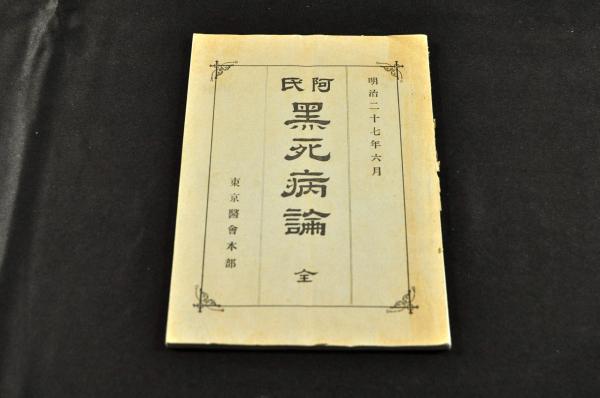 明治二十七年六月
阿氏
黑死病論 全
東京醫會本部